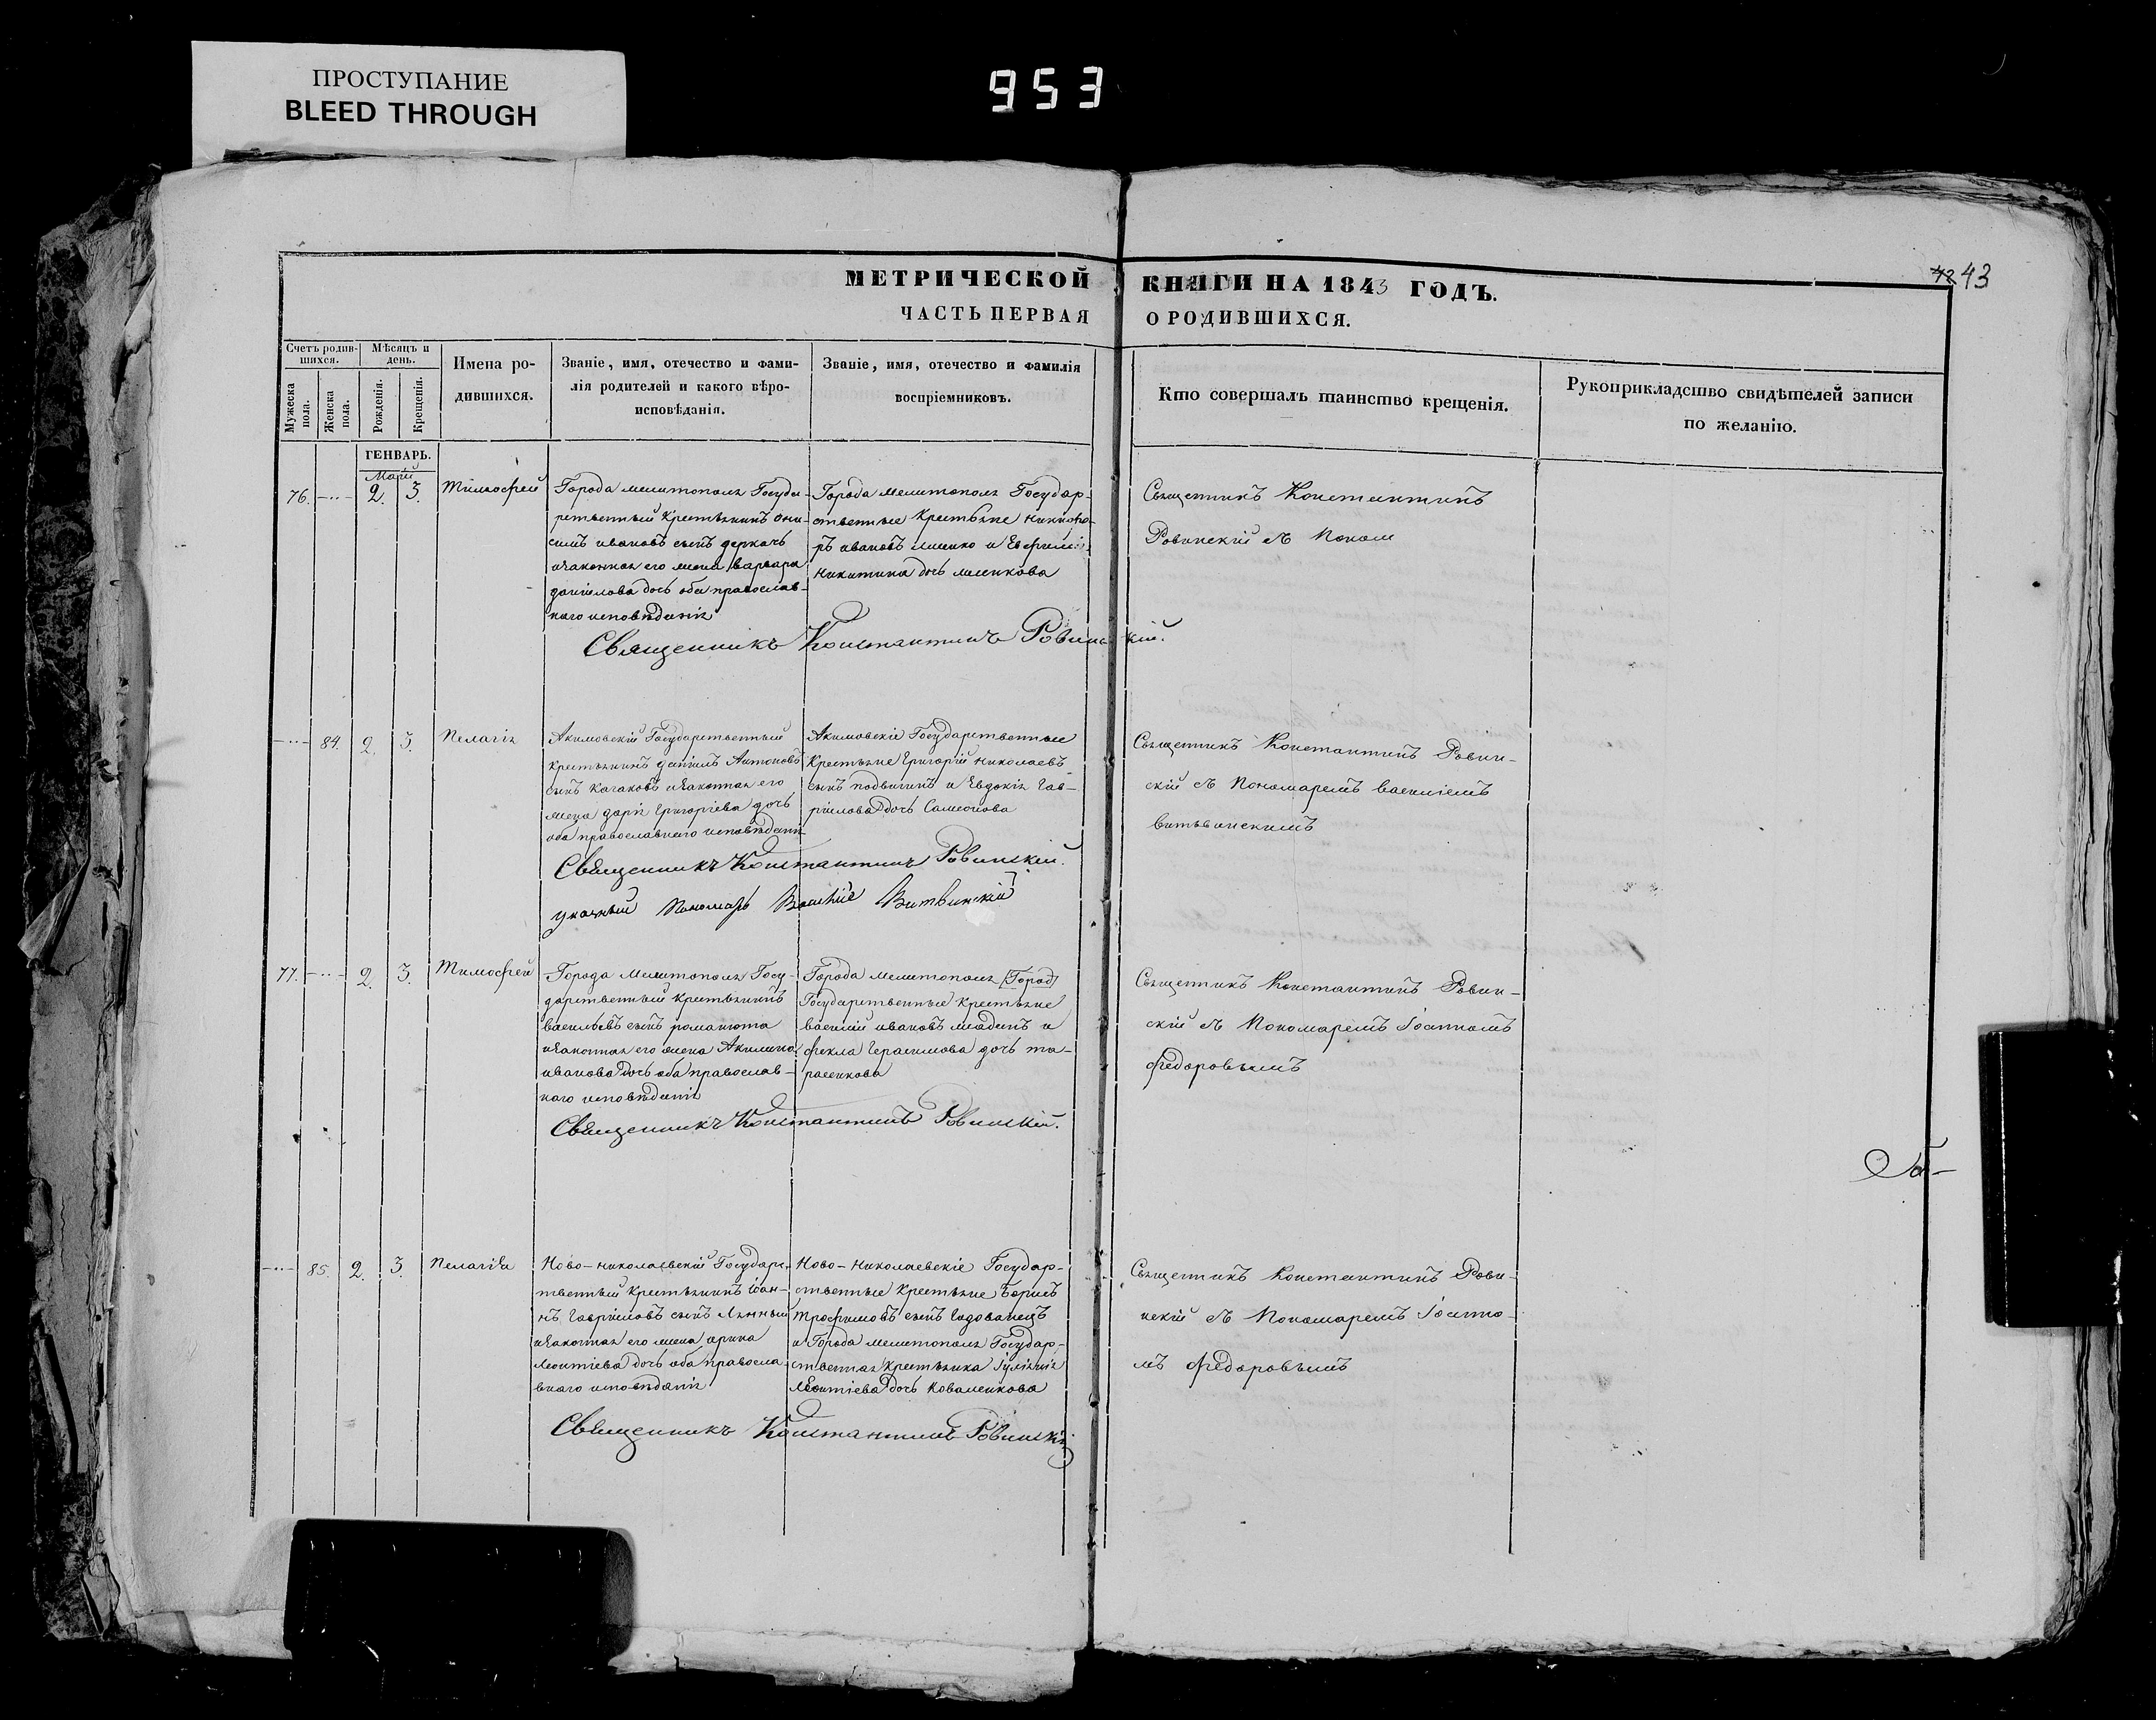 ПРОСТУПАНИЕ
BLEED THROUGH
953
МЕТРИЧЕСКОЙ КНИГИ НА 1843 ГОДЪ.
42 43
ЧАСТЬ ПЕРВАЯ О РОДИВШИХСЯ.
Счетъ родив-
шихся.
Мужеска
пола.
Женска
пола.
Мѣсяцъ и
день.
Рожденія.
Крещенія.
Имена ро-
дившихся.
Званіе, имя, отечество и фами-
лія родителей и какого вѣро-
исповѣданія.
Званіе, имя, отечество и фамилія
воспріемниковъ.
Кто совершалъ таинство крещенія.
Рукоприкладство свидѣтелей записи
по желанію.
ГЕНВАРЬ.
76. 2. 3. Тимофей
Города мелитополя Госуда-
рственный Крестьянинъ они-
симъ ивановъ сынъ деркачь
изаконная его жена варвара
даниилова дочь оба православ-
наго исповѣданія
Города мелитополя Государ-
ственные Крестьяне никифо-
ръ ивановъ
никитина дочь
Священникъ Константинъ
Ровинскій съ Поном
Священникъ Константинъ Ровинскій.
84. 2. 3. Пелагія
Акимовскій Государственный
крестьянинъ даніилъ Антоновъ
сынъ Казаковъ изаконная его
жена дарія Григоріева дочь
оба православнаго исповѣданія
Акимовскіе Государственные
Крестьяне Григорій николаевъ
сынъ подвигинъ и Евдокія Гав-
ріилова дочь Самсонова
Священникъ Константинъ Ровин-
скій съ Пономаремъ василіемъ
витвинскимъ
Священникъ Константинъ Ровинскій.
указный Пономарь Василій Витвинскій
77. 2. 3. Тимофей
Города Мелитополя Госу-
дарственный крестьянинъ
васильевъ сынъ романюта
изаконная его жена Акилина
иванова дочь оба православ-
наго исповѣданія
Города мелитополя [Город]
Государственные крестьяне
василій ивановъ и
фекла Герасимова дочь та-
расенкова
Священникъ Константинъ Ровин-
скій съ Пономаремъ Іоанномъ
Федоровымъ
Священникъ Константинъ Ровинскій.
85. 2. 3. Пелагія
Ново-николаевскій Государс-
твенный крестьянинъ іоан-
нъ Гавріиловъ сынъ
изаконная его жена ирина
леонтіева дочь оба правосла-
внаго исповѣданія
Ново-Николаевскіе Государ-
ственные Крестьяне Борисъ
трофимовъ сынъ Годованецъ
и Города мелитополя Государ-
ственная крестьянка Іуліанія
Леонтіева дочь Коваленкова
Священникъ Константинъ Рови-
нскій съ Пономаремъ Іоанно-
мъ Федоровымъ
Священникъ Константинъ Ровинскій